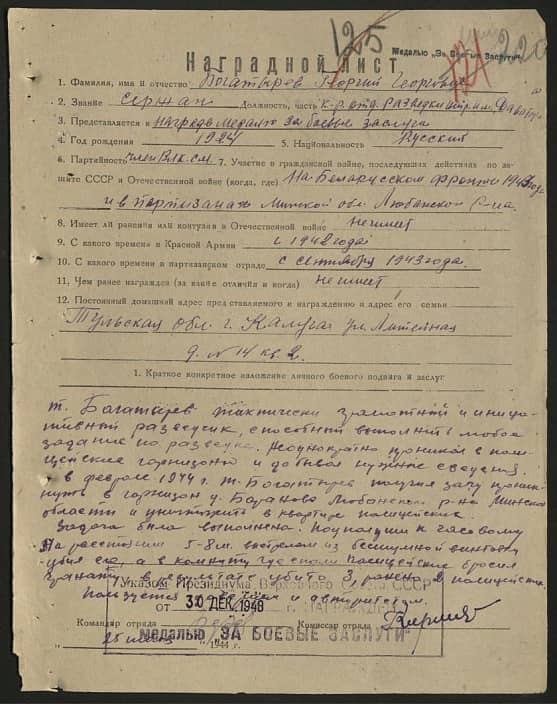 125
Медалью „За Боевые Заслуги"
220
Наградной лист
1. Фамилия, имя и отчество Богатырев Георгий Георгиевич
2. Звание сержант Должность, часть к-р отд. разведки
3. Представляется к награде медалью за боевые заслуги
4. Год рождения 1924 5. Национальность Русский
6. Партийность член ВЛКСМ 7. Участие в гражданской войне, последующих действиях по за-
щите СССР и Отечественной войне (когда, где) На Беларусском фронте 194 года
и в партизанах Минской обл. Любанского р-на.
8. Имеет ли ранения или контузия в Отечественной войне не имеет
9. С какого времени в Красной Армии с 1942 года
10. С какого времени в партизанском отряде с сентября 1943 года.
11. Чем ранее награжден (за какие отличия и когда) не имеет
12. Постоянный домашний адрес представляемого к награждению и адрес его семьи
Тульская обл. г. Калуга ул. Литейная
д. № 14 кв. 2.
1. Краткое конкретное изложение личного боевого подвига и заслуг
т. Богатырев тактически грамотный и иници-
ативный разведчик, способный выполнить любое
задание по разведке. Неоднократно проникал в поли-
цейские гарнизоны и добывал нужные сведения.
в феврале 1944 г. т. Богатырев получил задачу проник-
нуть в гарнизон д. Бараново Любанского р-на Минской
области и уничтожить в квартире полицейских.
Задача была выполнена. Подползши к часовому
на расстоянии 5-8 м. выстрелом из бесшумной винтовки
убил его, а в комнату где спали полицейские бросил
гранату, в результате убито 3 ранено 2 полицейских.
Пользуется и авторитетом.
Указом Президиума Верховного Совета СССР
от 30 ДЕК 1948 г. НАГРАЖДЕН
Командир отряда Комиссар отряда
медалью „ЗА БОЕВЫЕ ЗАСЛУГИ"
25 1944 г.